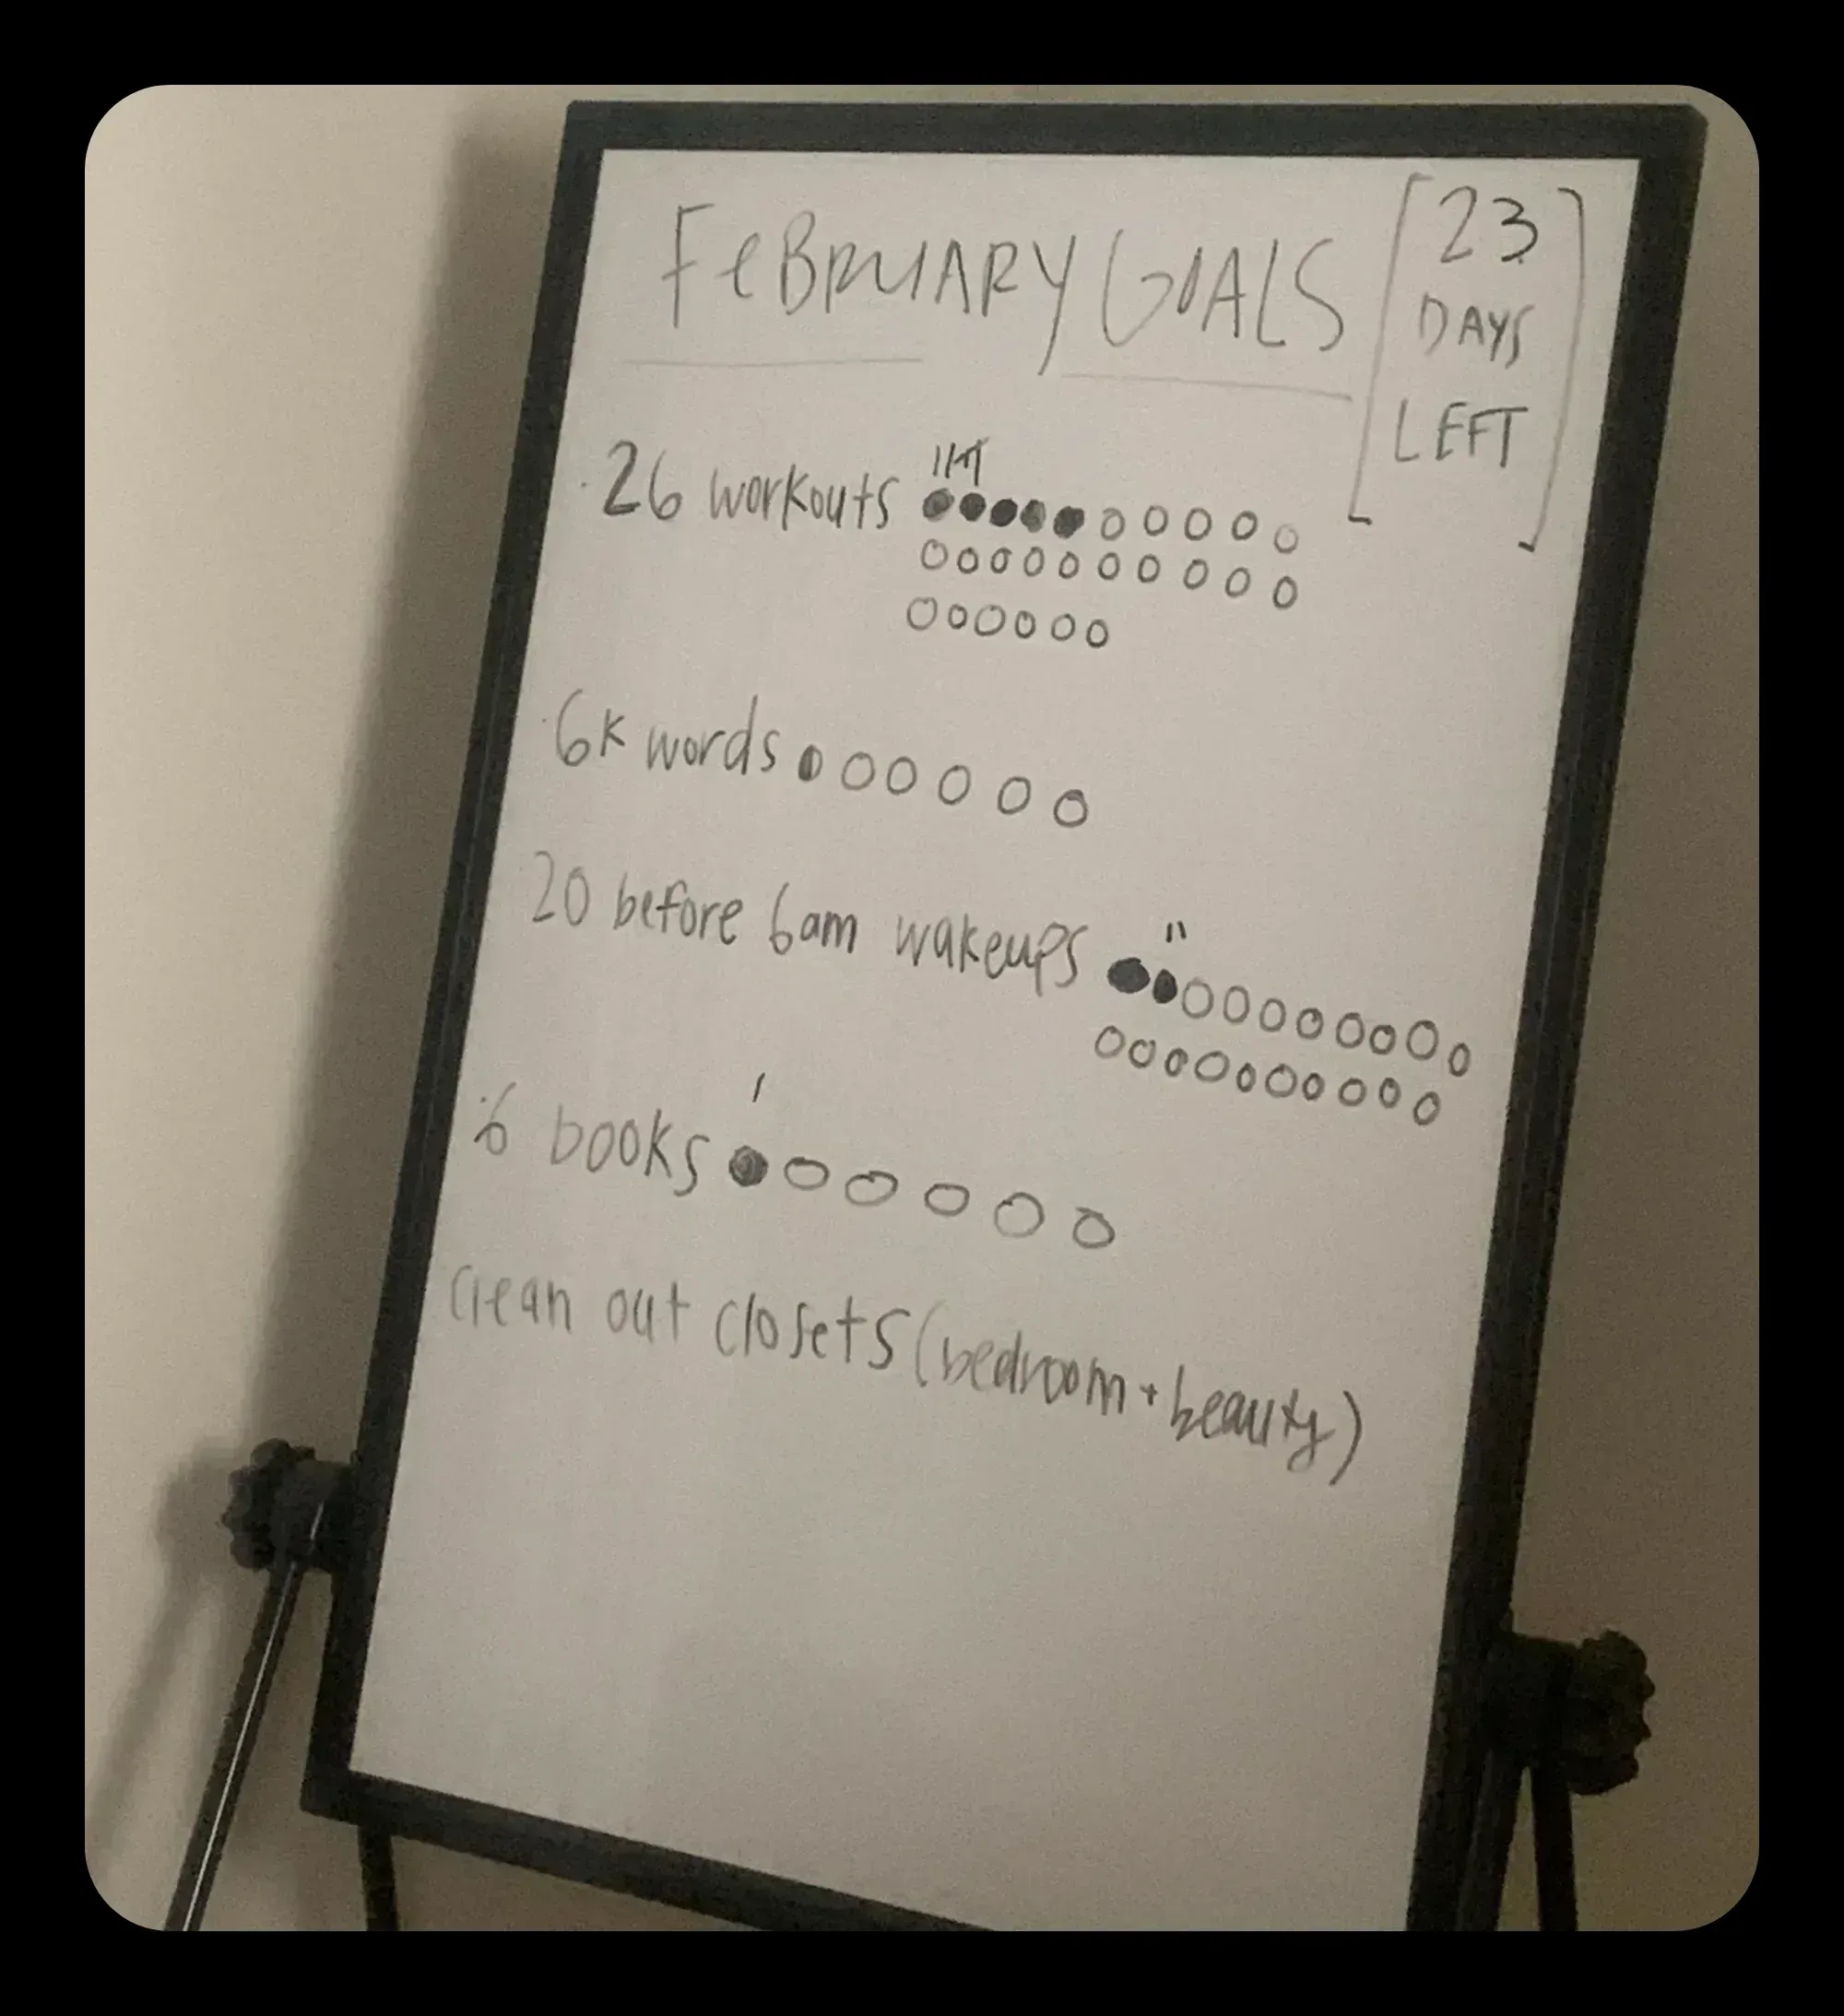 FeBRUARY GOALS
[23
DAYS
LEFT]
26 workouts
6k words
20 before 6am wakeups
6 books
clean out closets (bedroom + beauty)